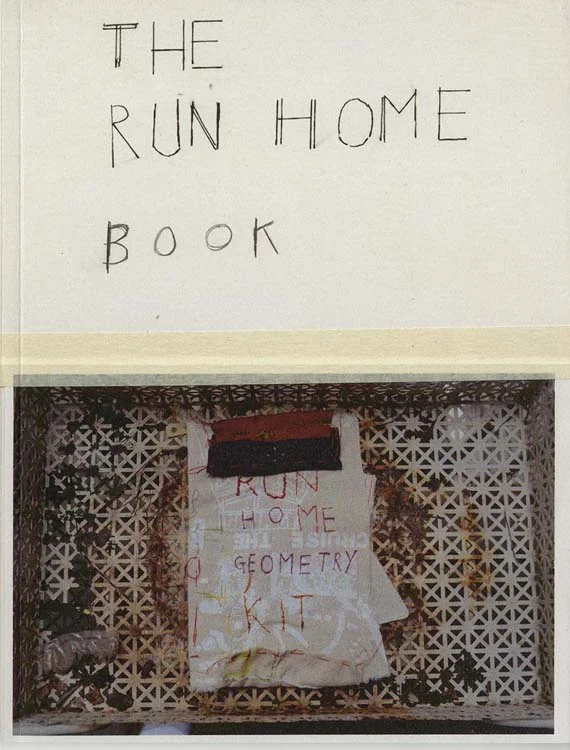 THE
RUN HOME
BOOK
RUN
HOME
CRUISE THE
GEOMETRY
KIT